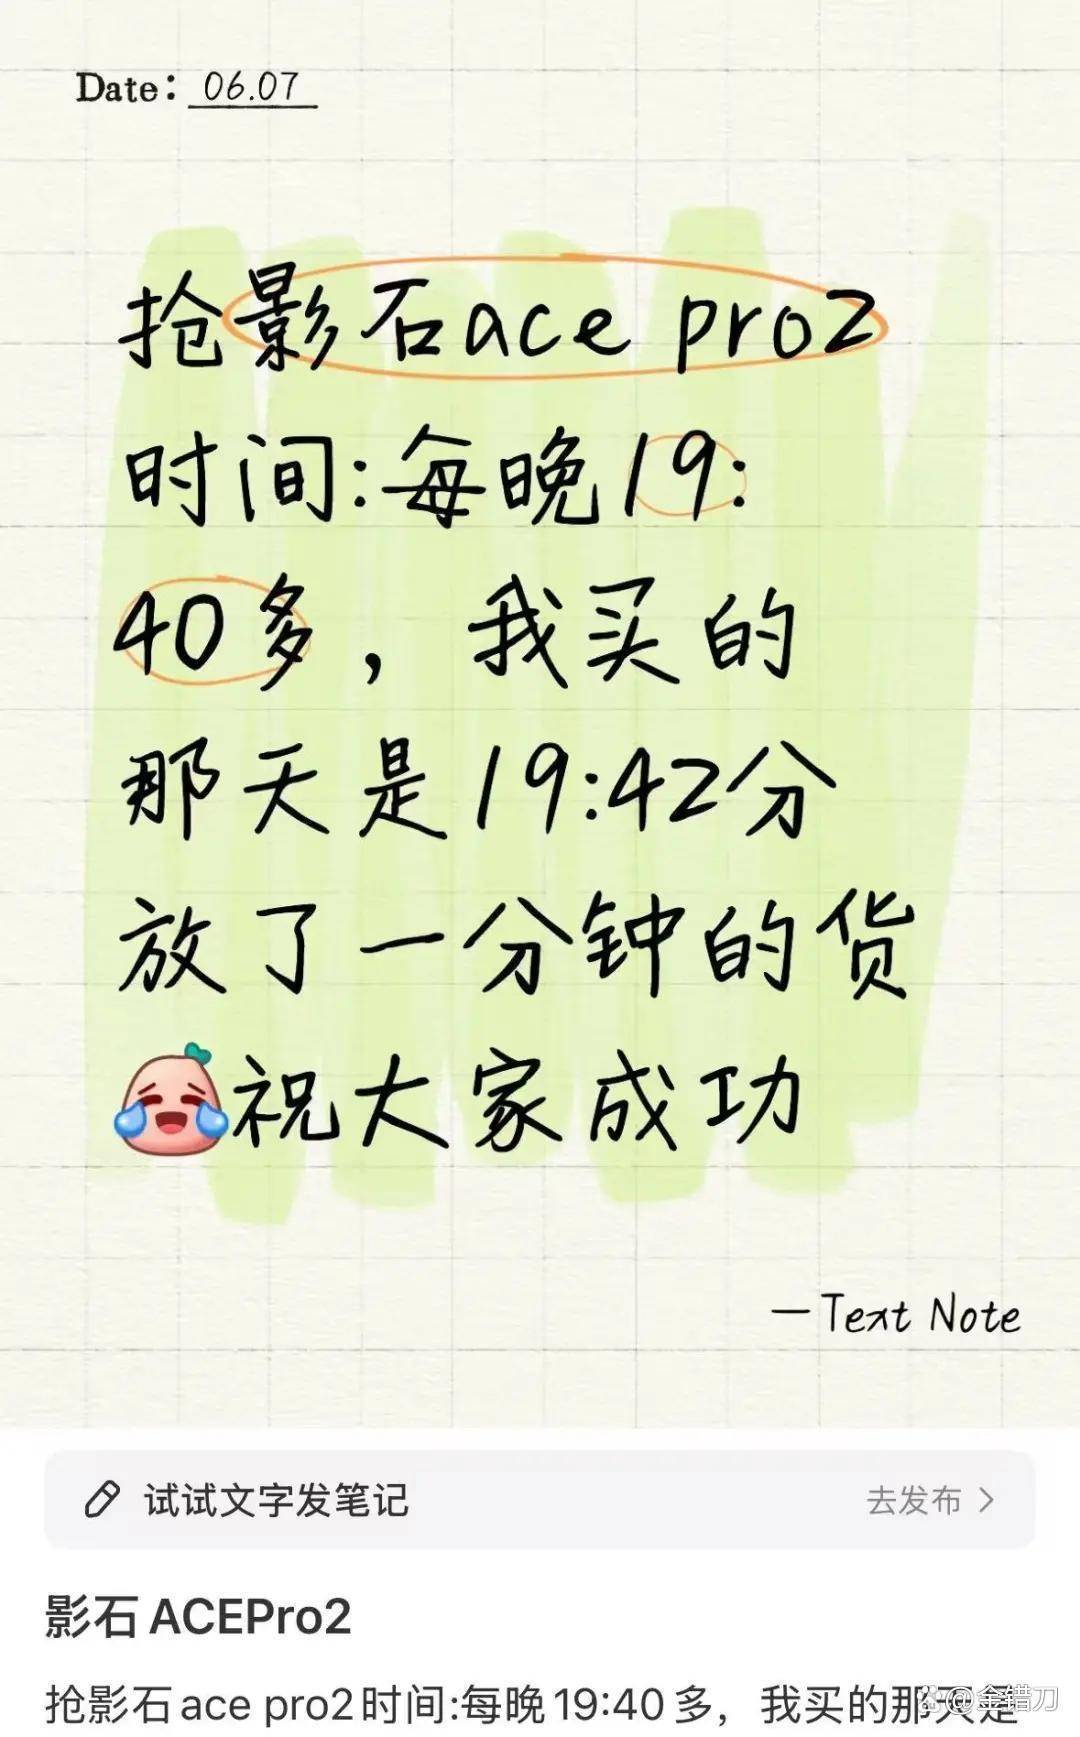 Date: 06.07
抢影石ace pro2
时间:每晚19:
40多，我买的
那天是19:42分
放了一分钟的货
祝大家成功
—Text Note
试试文字发笔记
去发布
影石ACEPro2
抢影石ace pro2时间:每晚19:40多，我买的那天是
@金错刀